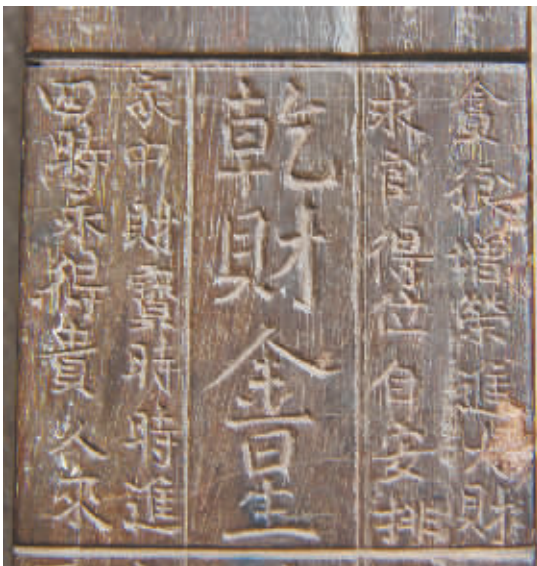 貪狼增榮進大財
求官得位自安排
乾財金星
家中財寶時時進
四時永得貴人來